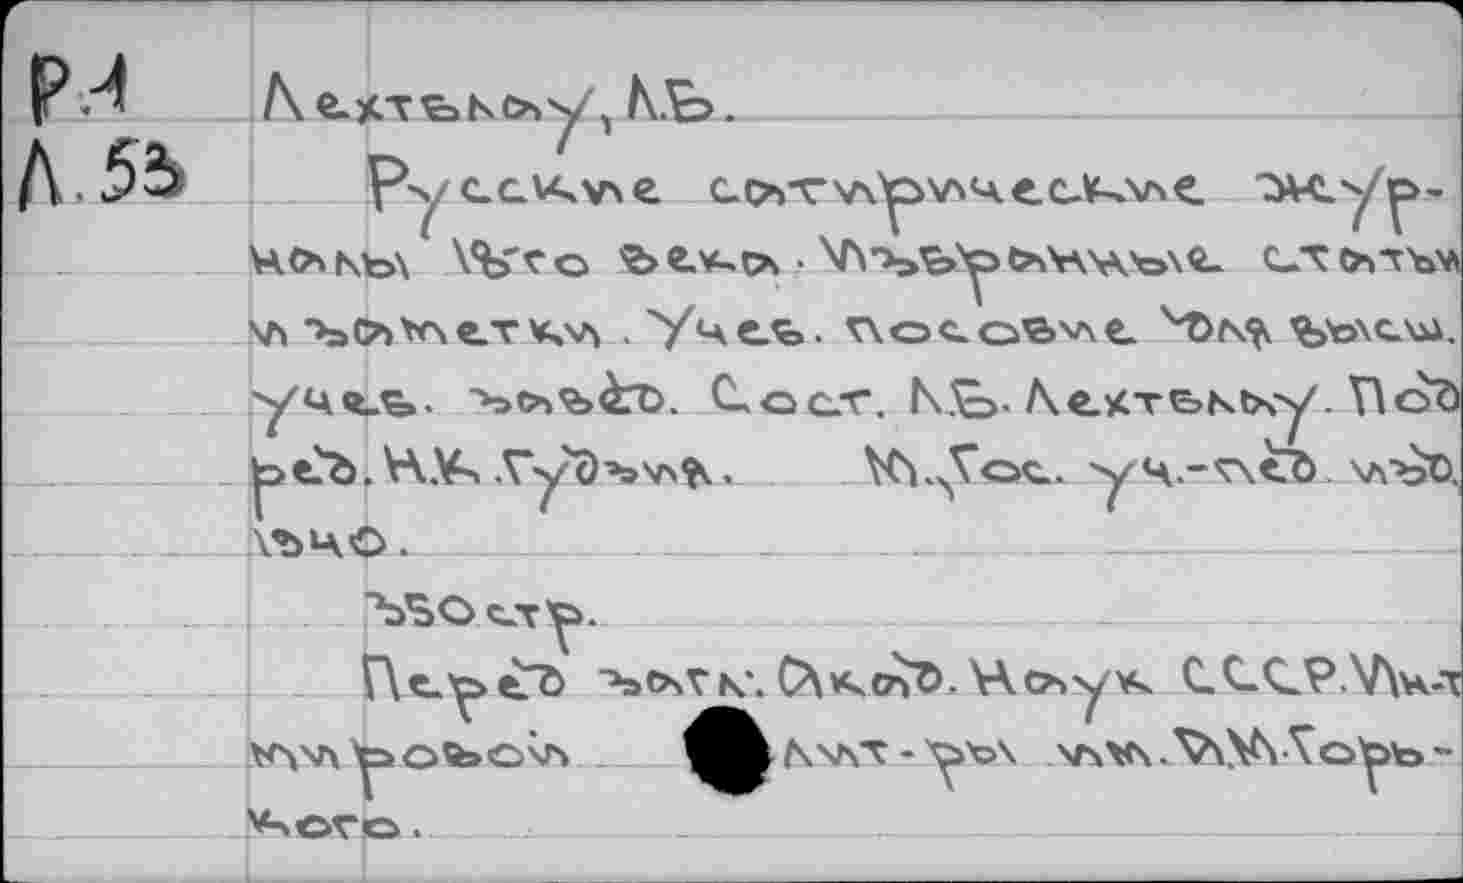 Р.1
Л.53
Лехтблау, Л.Б.
Русские сатирические жур-
налы 18-го века. Избранные стать
и заметки. Учеб. пособие для высш.
учеб. завед. Сост. Л.Б. Лехтблау. Под
ред. Н.К. Гудзия. М., Гос. уч.-пед. изд.
1940.
350 стр.
Перед загл: Акад. Наук СССР. Инт
мировой лит-ры им. А.М. Горь-
кого.